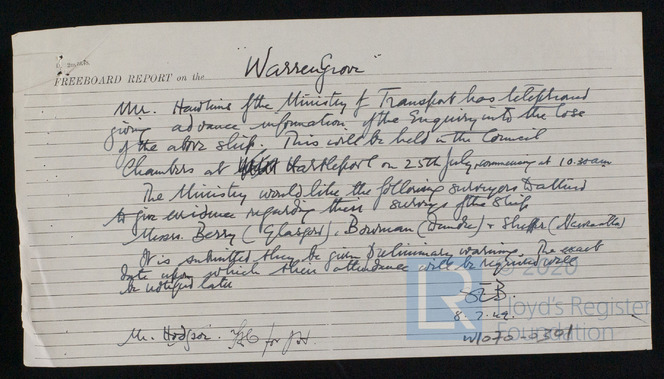 FREEBOARD REPORT on the "Warrengrove"
Mr. Hawkins of the Ministry of Transport has telephoned
giving advance information of the Enquiry into the loss
of the above ship. This will be held in the Council
Chambers at Hartlepool on 25th July, commencing at 10.30 am
The Ministry would like the following surveyors to attend
to give evidence regarding their surveys of the ship
Messrs. Berry (Glasgow), Bowman (Dundee) & (Newcastle)
It is submitted they be given preliminary warning. The exact
date upon which their attendance will be required will
be notified later
8.7.49
Mr. Hodgson. for
W1070-0301
© 2020
LR
Lloyd's Register
Foundation